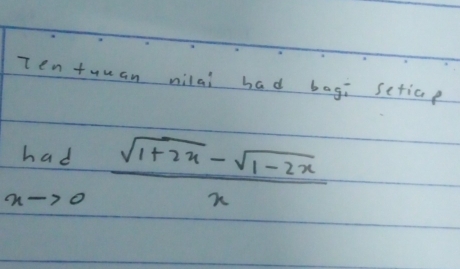 Tentukan nilai had bagi setiap
had √1+2x − √1−2x
x→0 x